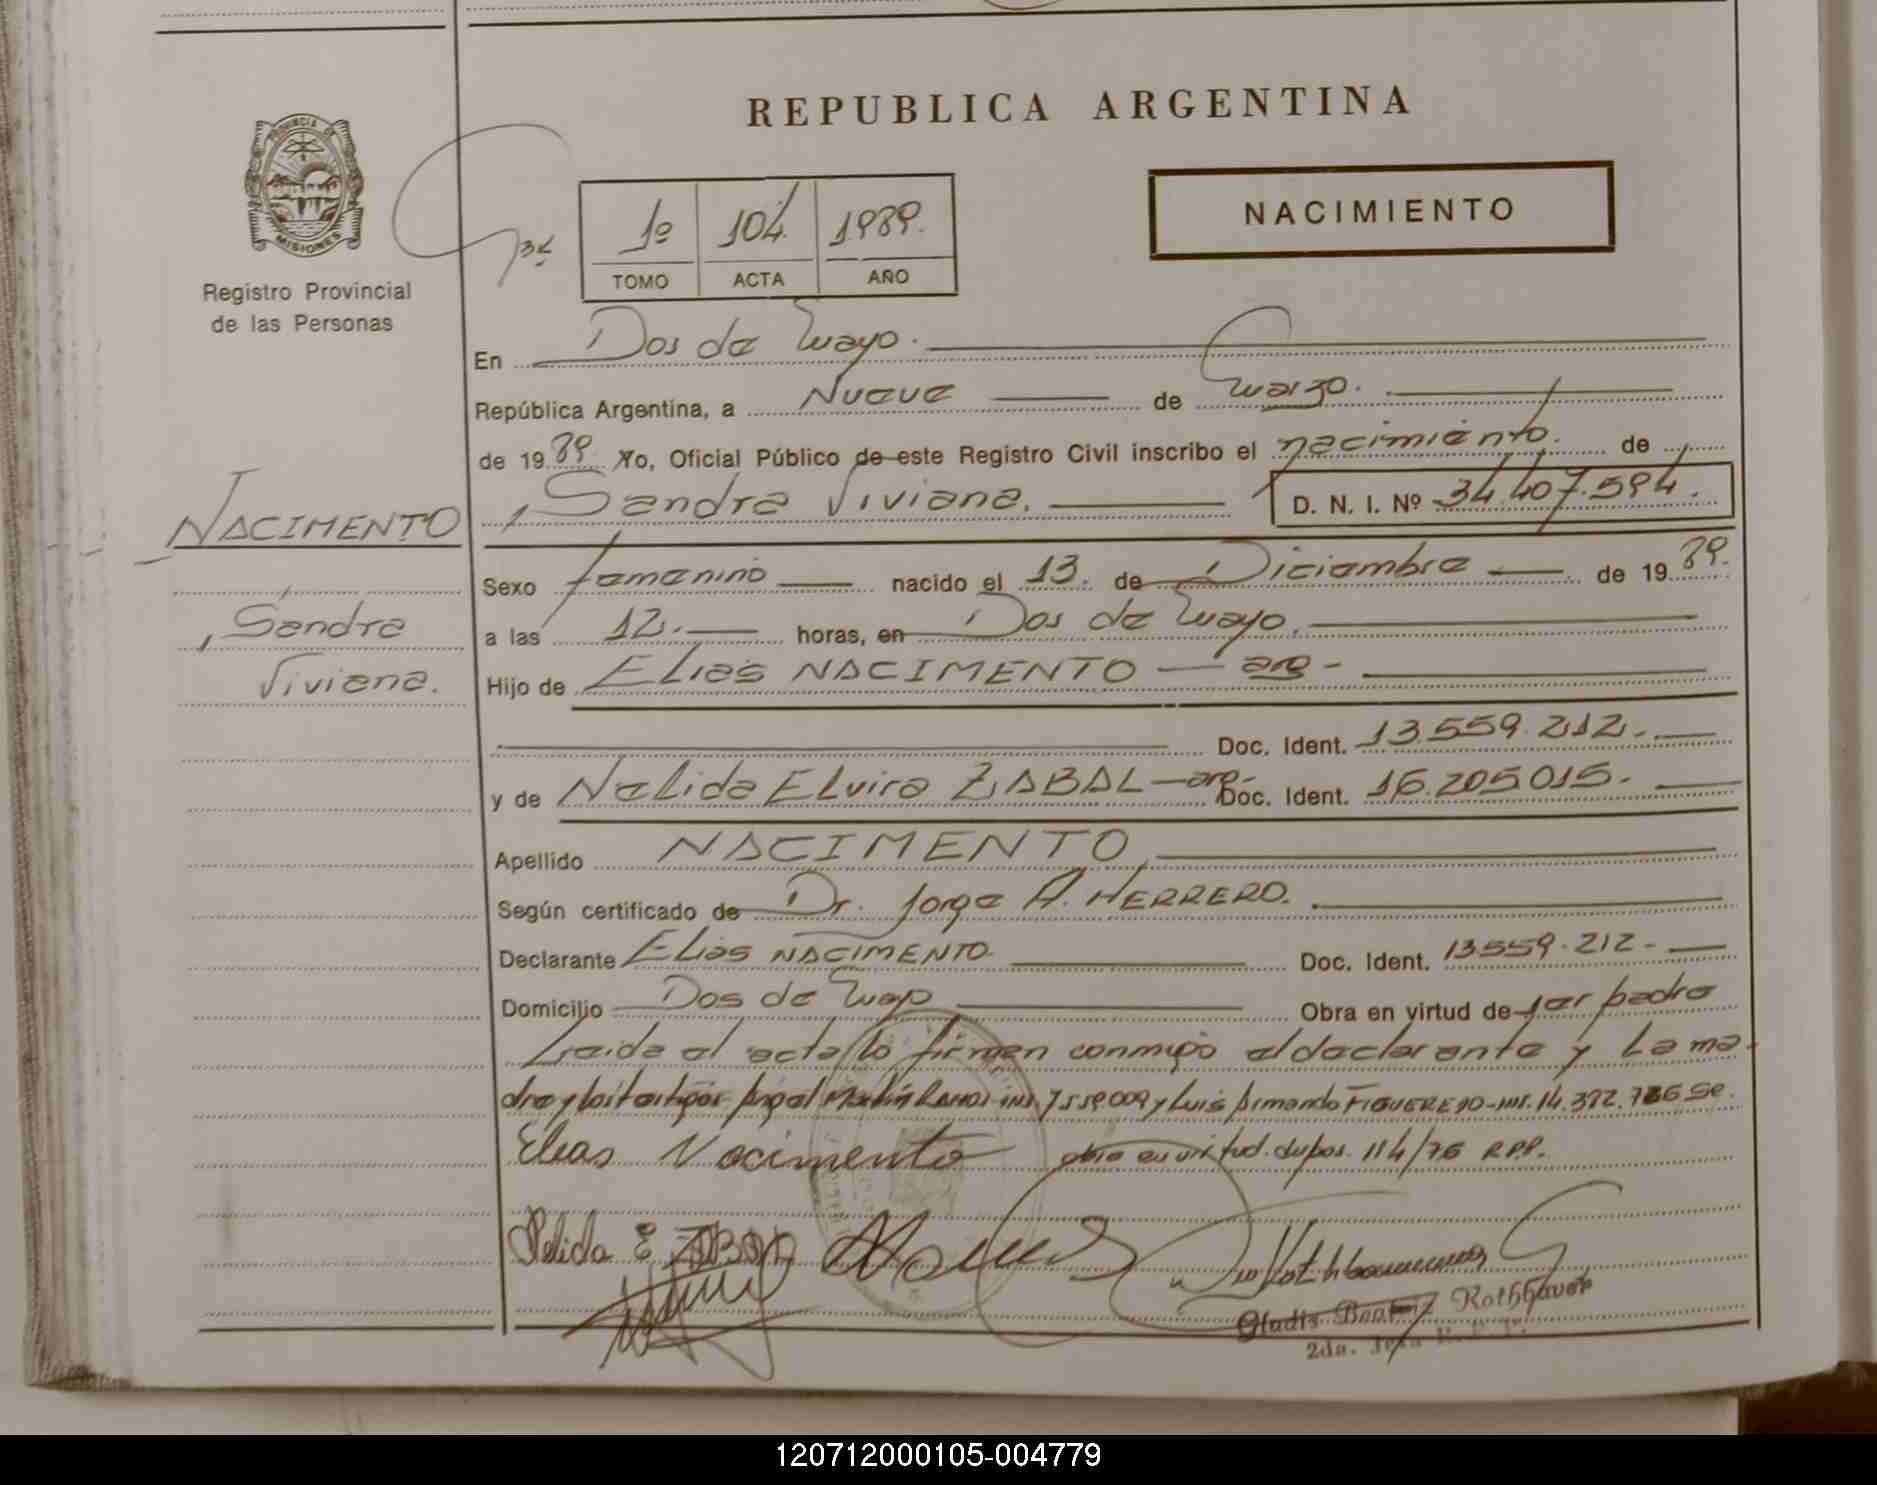 REPUBLICA ARGENTINA
PROVINCIA DE
MISIONES
Registro Provincial
de las Personas
1º 104 1989.
TOMO ACTA AÑO
NACIMIENTO
En Dos de Mayo.
República Argentina, a Nueve de Marzo.
de 1989. Yo, Oficial Público de este Registro Civil inscribo el nacimiento. de
Sandra Viviana. D. N. I. Nº 34.407.594.
NACIMENTO
Sandra
Viviana.
Sexo femenino nacido el 13. de Diciembre de 1989.
a las 12. horas, en Dos de Mayo.
Hijo de Elias NACIMENTO — arg -
Doc. Ident. 13.559.212.
y de Nelida Elvira ZABAL — arg- Doc. Ident. 16.205.015.
Apellido NACIMENTO
Según certificado de Dr. Jorge A. HERRERO.
Declarante Elias NACIMENTO Doc. Ident. 13.559.212-
Domicilio Dos de Mayo Obra en virtud de ser padre
Leida el acta lo firman conmigo el declarante y La ma-
dre y los testigos Martín RAMOS y Luis Armando FIGUEREDO
Elias Nacimento obra en virtud. 114/76 R.P.P.
Nelida E ZABAL
Gladis Beatriz Rothbaver
2da. Jefa
120712000105-004779